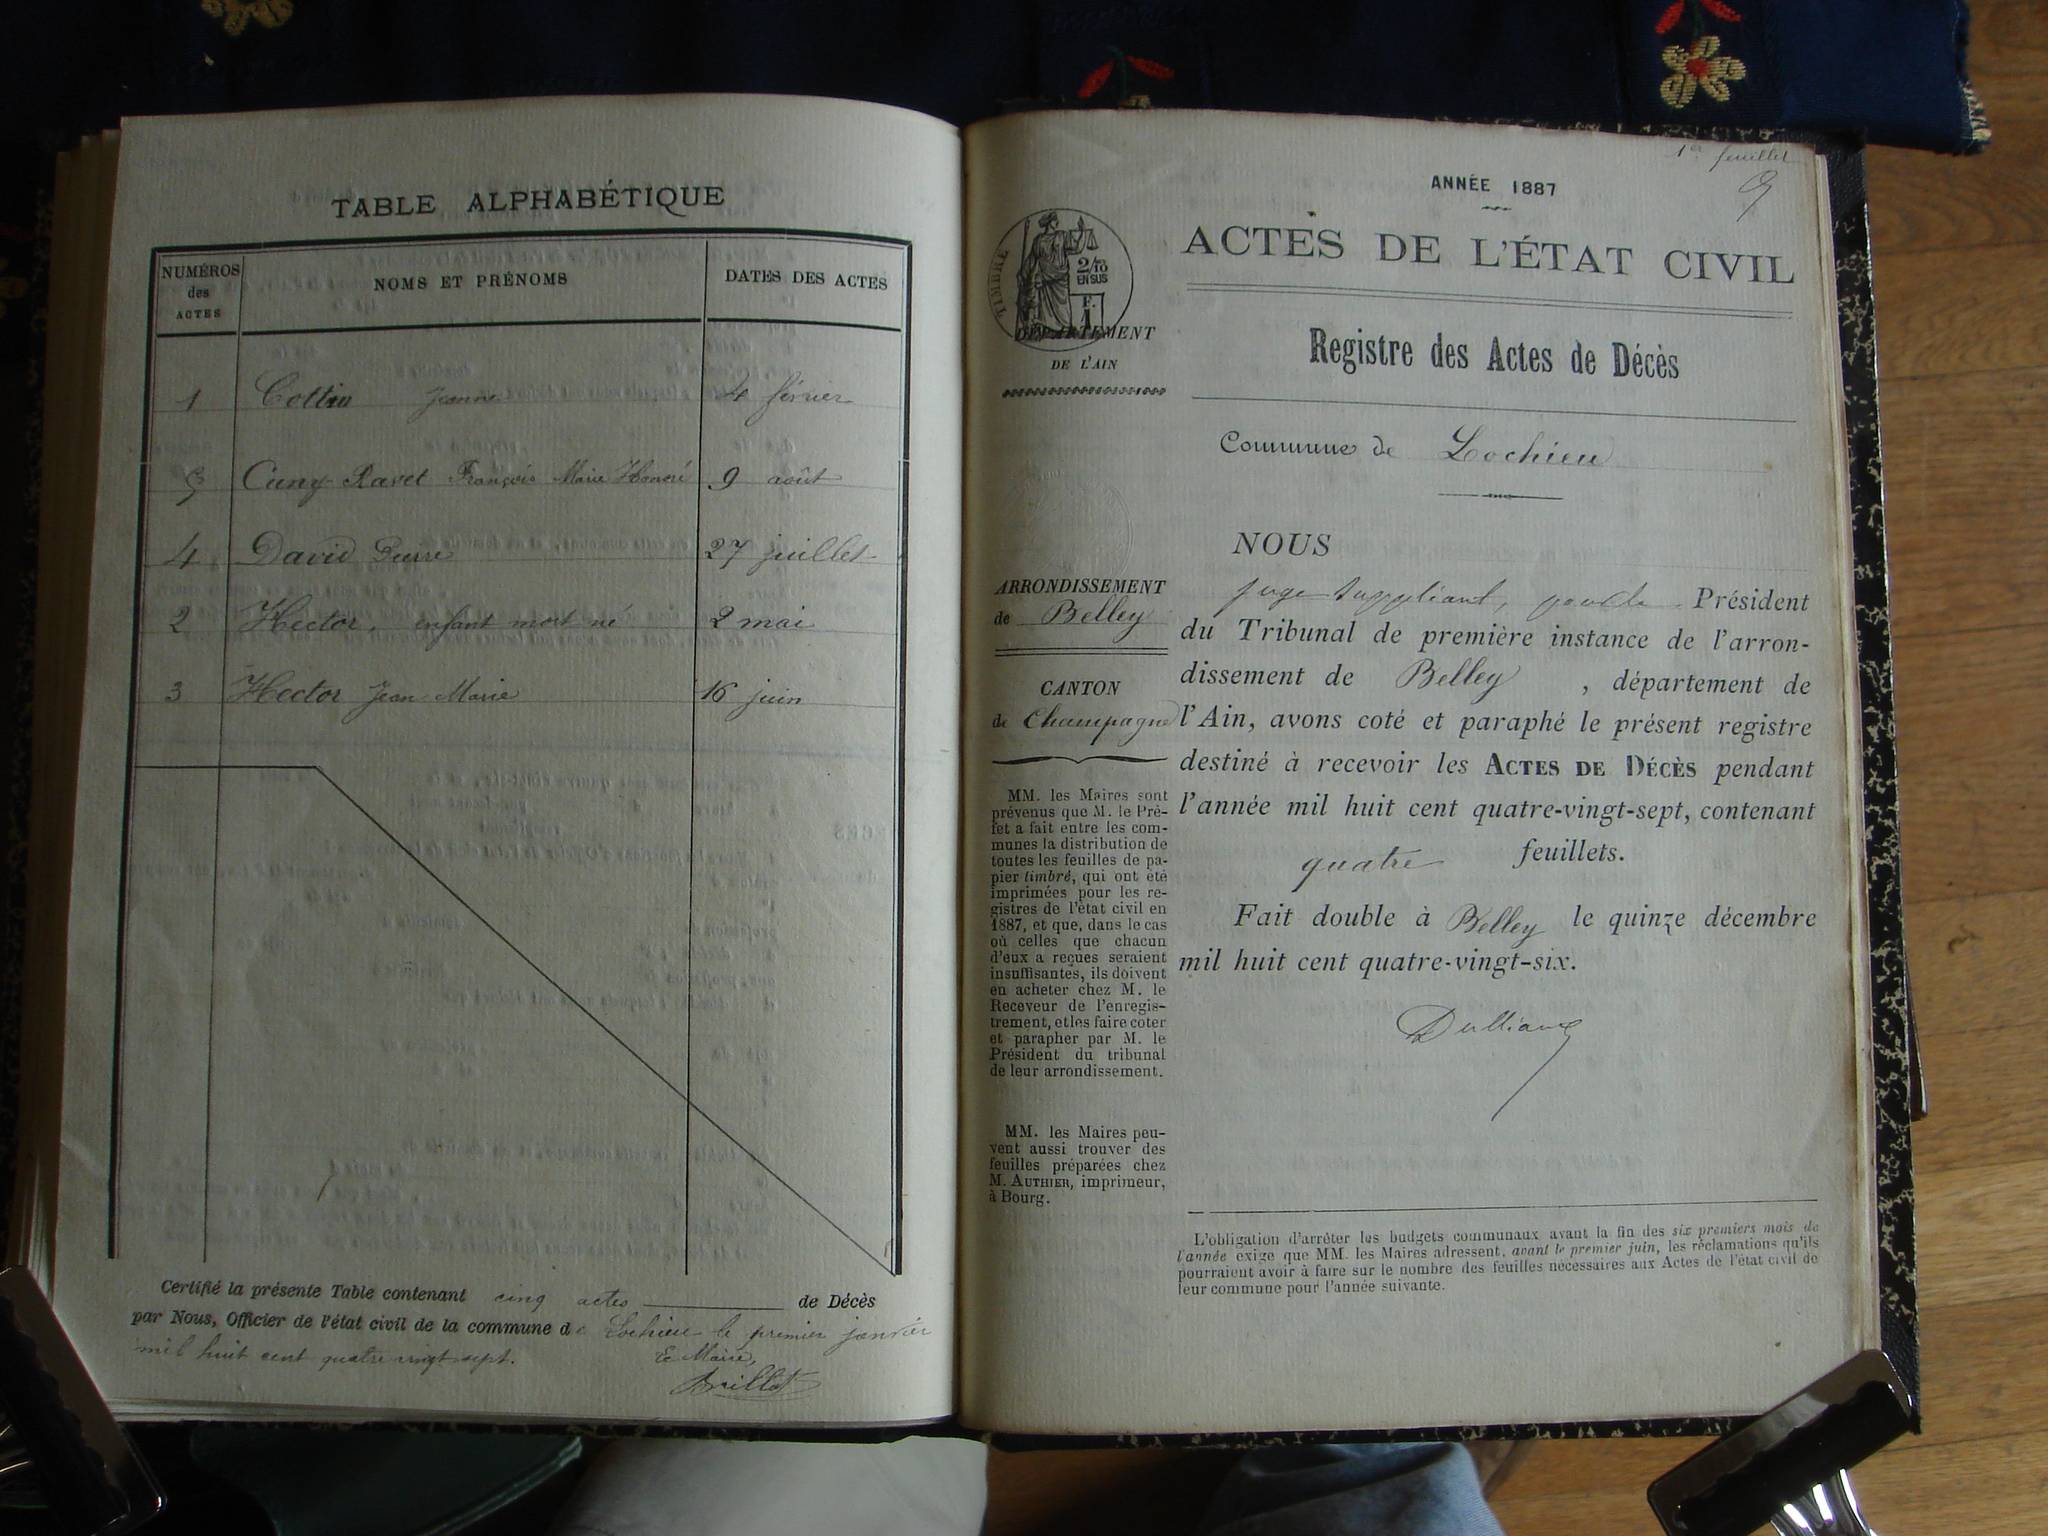 TABLE ALPHABÉTIQUE
NUMÉROS des ACTES
NOMS ET PRÉNOMS
DATES DES ACTES
1 Cottin Jeanne 4 février
5 Cuny-Ravet François Marie Honoré 9 août
4 David Pierre 27 juillet
2 Hector, enfant mort né 2 mai
3 Hector Jean Marie 16 juin
Certifié la présente Table contenant cinq actes de Décès
par Nous, Officier de l'état civil de la commune de Lochieu le premier janvier
mil huit cent quatre vingt sept.
Le Maire,
1er feuillet
ANNÉE 1887
ACTES DE L'ÉTAT CIVIL
TIMBRE
2/10
EN SUS
F.
1
DÉPARTEMENT
DE L'AIN
Registre des Actes de Décès
Commune de Lochieu
ARRONDISSEMENT
de Belley
CANTON
de Champagne
MM. les Maires sont
prévenus que M. le Pré-
fet a fait entre les com-
munes la distribution de
toutes les feuilles de pa-
pier timbré, qui ont été
imprimées pour les re-
gistres de l'état civil en
1887, et que, dans le cas
où celles que chacun
d'eux a reçues seraient
insuffisantes, ils doivent
en acheter chez M. le
Receveur de l'enregis-
trement, et les faire coter
et parapher par M. le
Président du tribunal
de leur arrondissement.
MM. les Maires peu-
vent aussi trouver des
feuilles préparées chez
M. AUTHIER, imprimeur,
à Bourg.
NOUS
juge suppléant, pour le Président
du Tribunal de première instance de l'arron-
dissement de Belley, département de
l'Ain, avons coté et paraphé le présent registre
destiné à recevoir les ACTES DE DÉCÈS pendant
l'année mil huit cent quatre-vingt-sept, contenant
quatre feuillets.
Fait double à Belley le quinze décembre
mil huit cent quatre-vingt-six.
L'obligation d'arrêter les budgets communaux avant la fin des six premiers mois de
l'année exige que MM. les Maires adressent, avant le premier juin, les réclamations qu'ils
pourraient avoir à faire sur le nombre des feuilles nécessaires aux Actes de l'état civil de
leur commune pour l'année suivante.